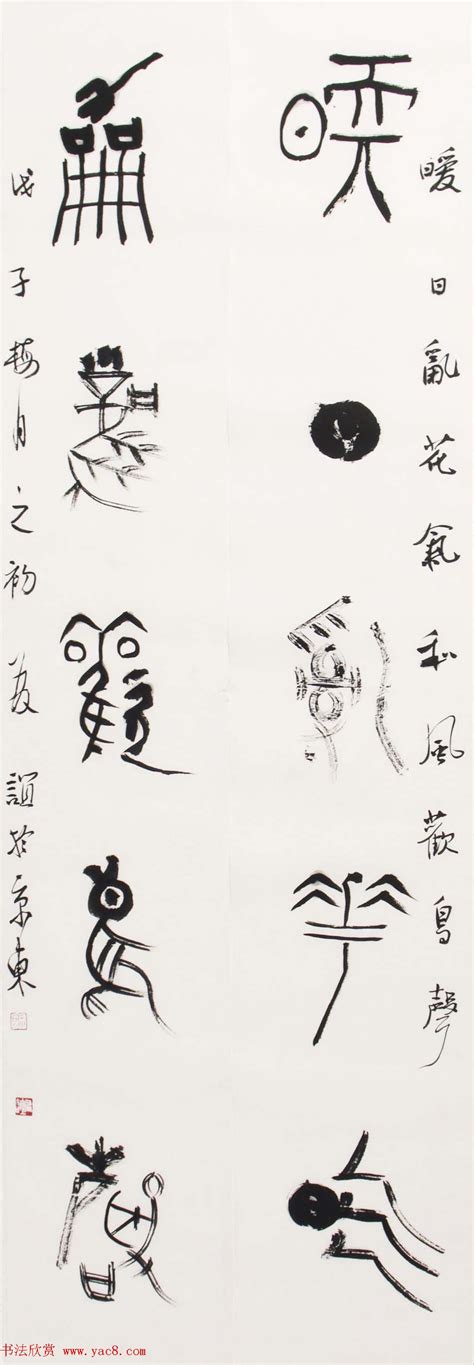 暖日亂花氣和風歡鳥聲
暖日亂華氣
龢風歡鳥聲
戊子梅月之初 誼於京東
书法欣赏 www.yac8.com